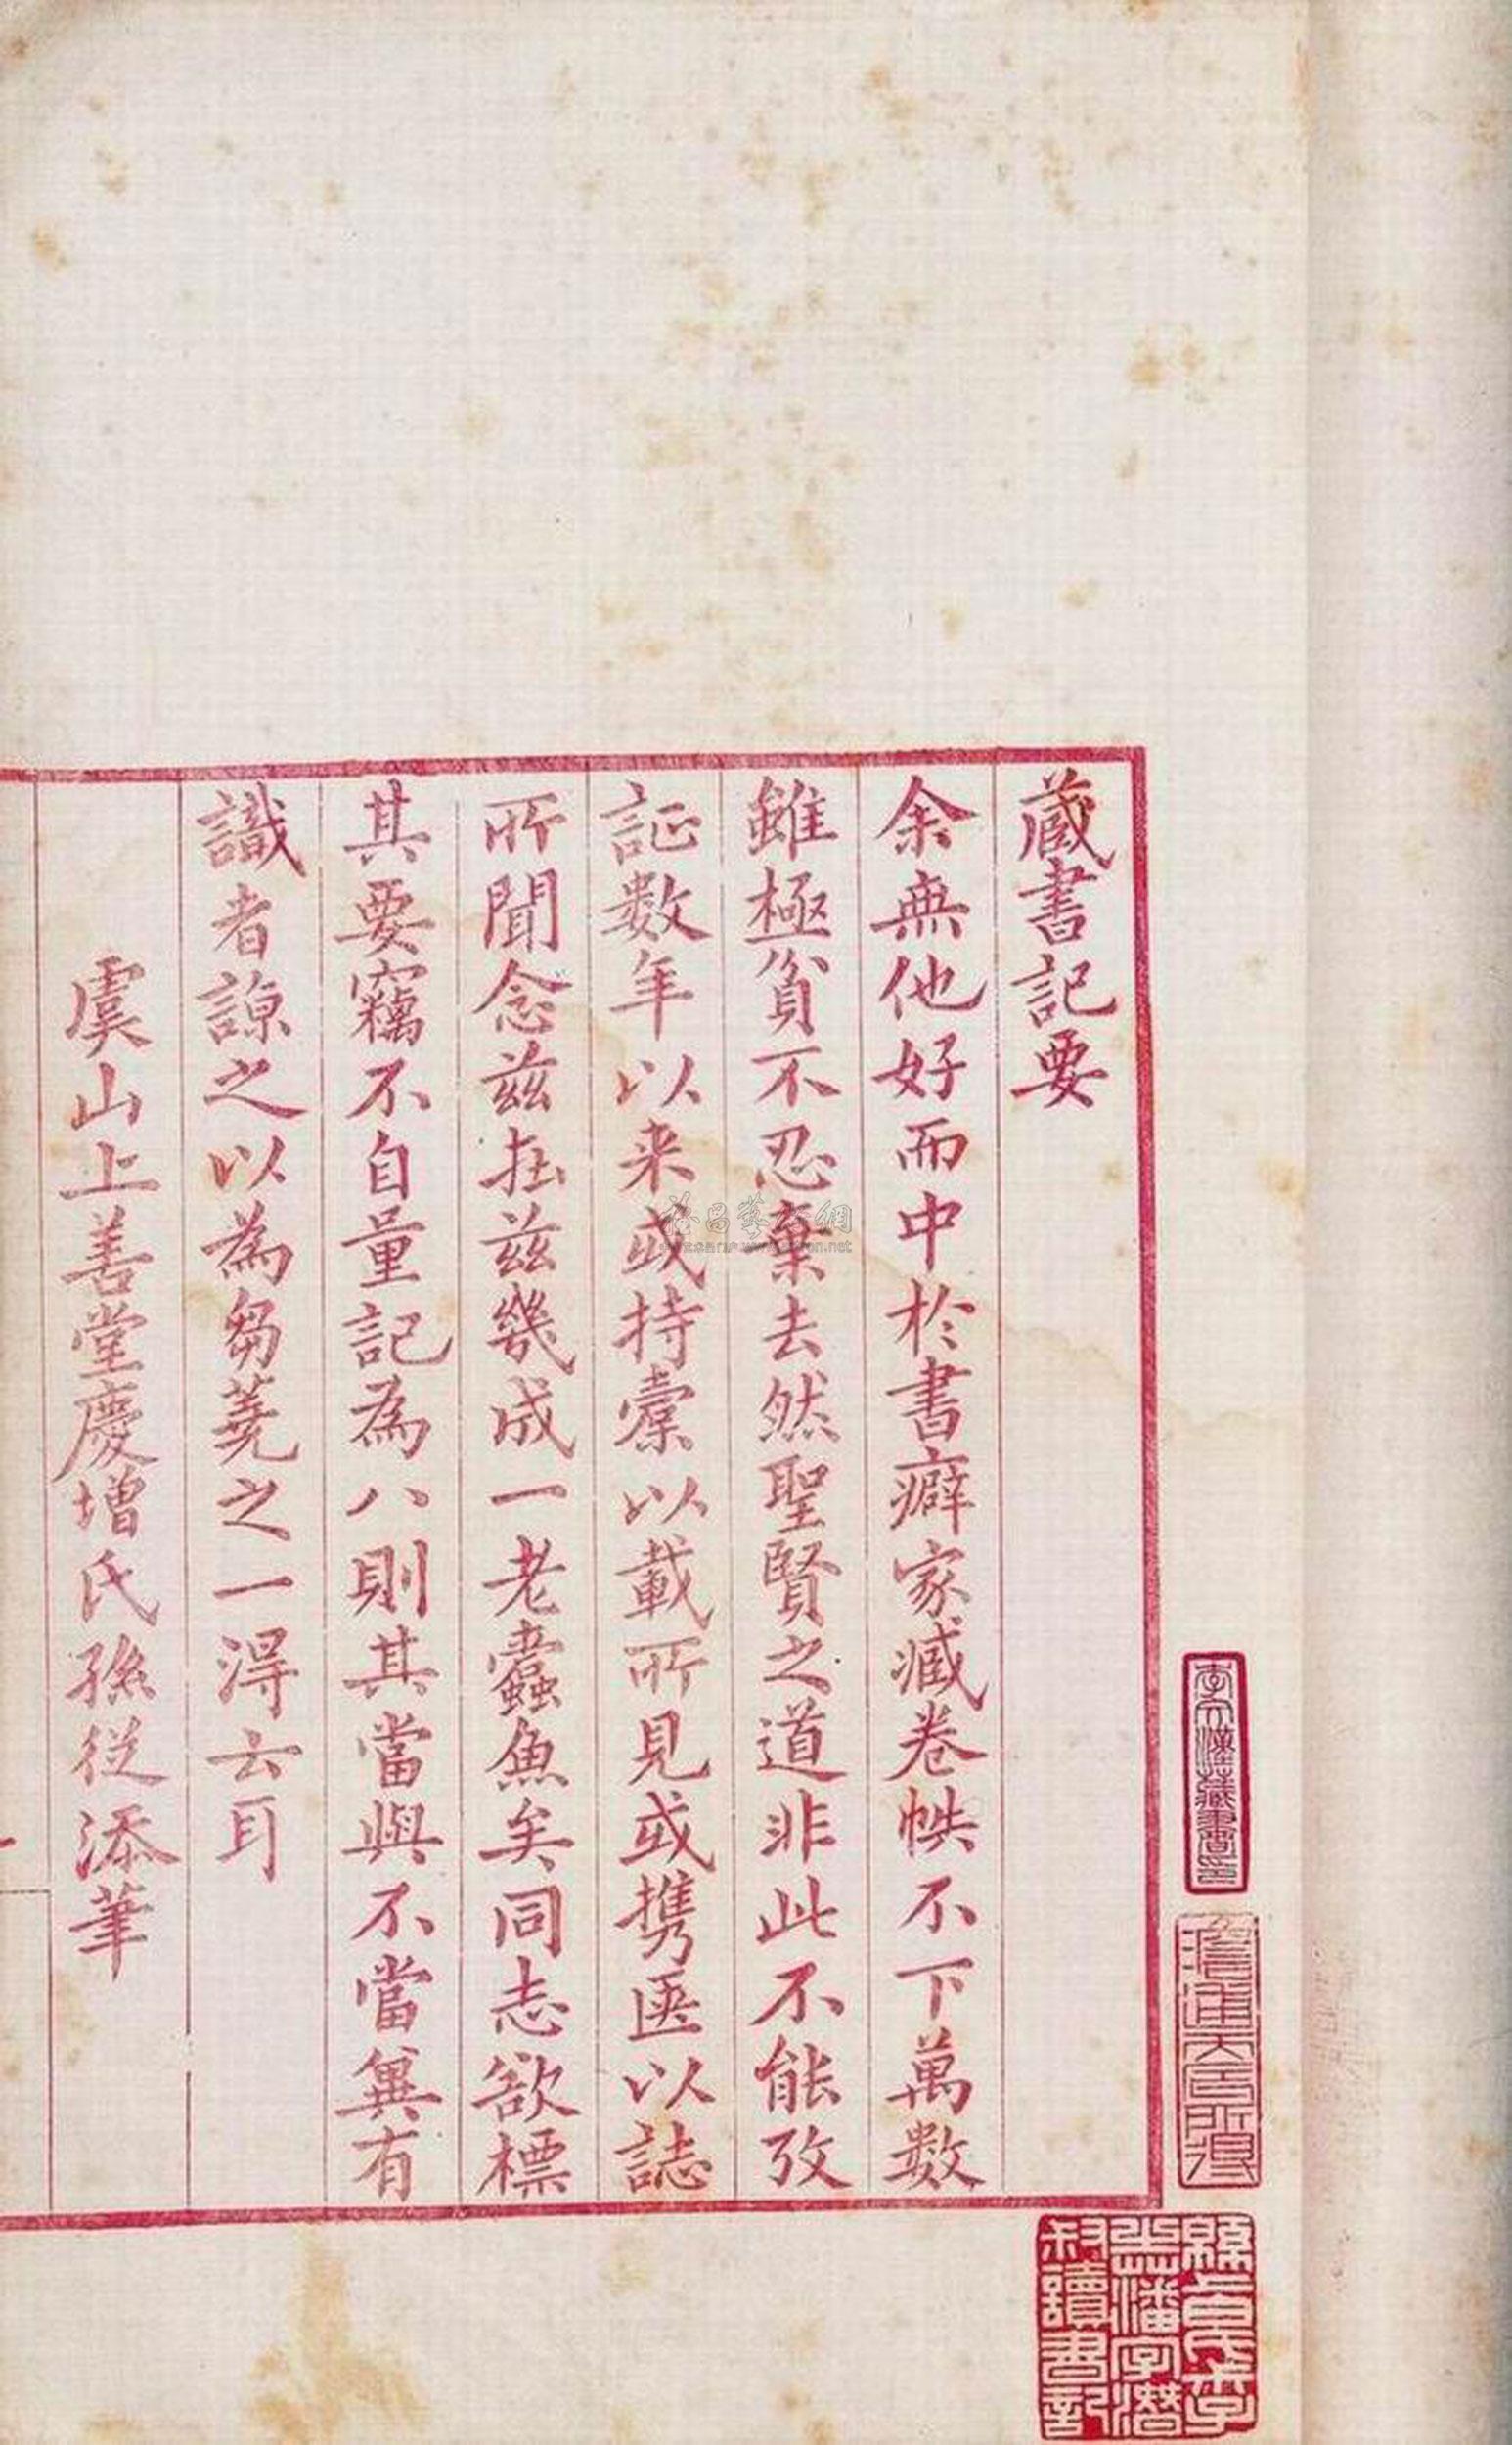 藏書記要
余無他好而中於書癖家藏卷帙不下萬數
雖極貧不忍棄去然聖賢之道非此不能攷
証数年以来或持橐以載所見或携匧以誌
所聞念兹在兹幾成一老蠹魚矣同志欲標
其要竊不自量記為八則其當與不當冀有
識者諒之以為芻蕘之一得云耳
虞山上善堂慶增氏孫從添筆
李文漢藏書印
緜上民李
芝潘字潛
叔讀書記